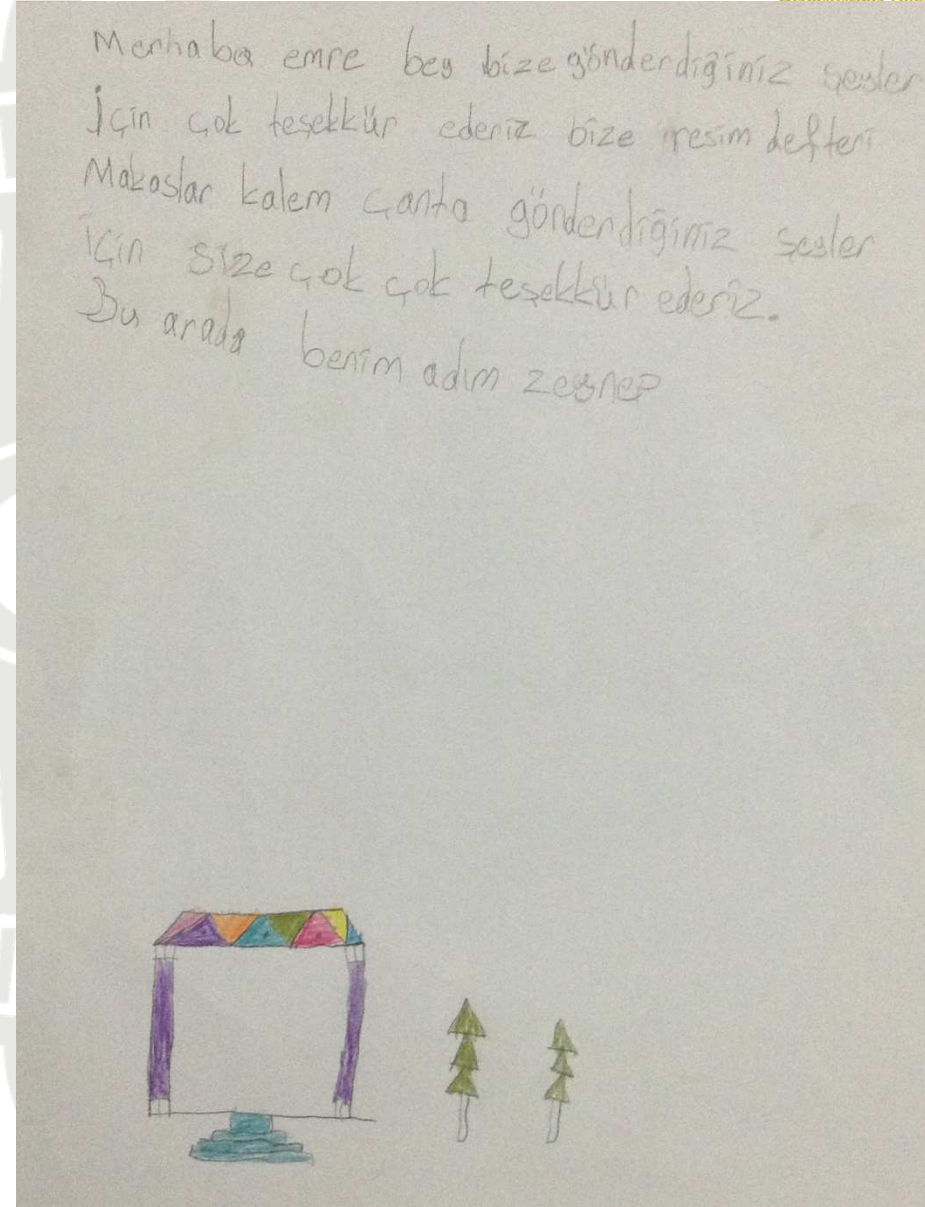 Merhaba emre bey bize gönderdiğiniz şeyler
İçin çok teşekkür ederiz bize resim defteri
Makaslar kalem çanta gönderdiğiniz şeyler
için size çok çok teşekkür ederiz.
Bu arada benim adım zeynep